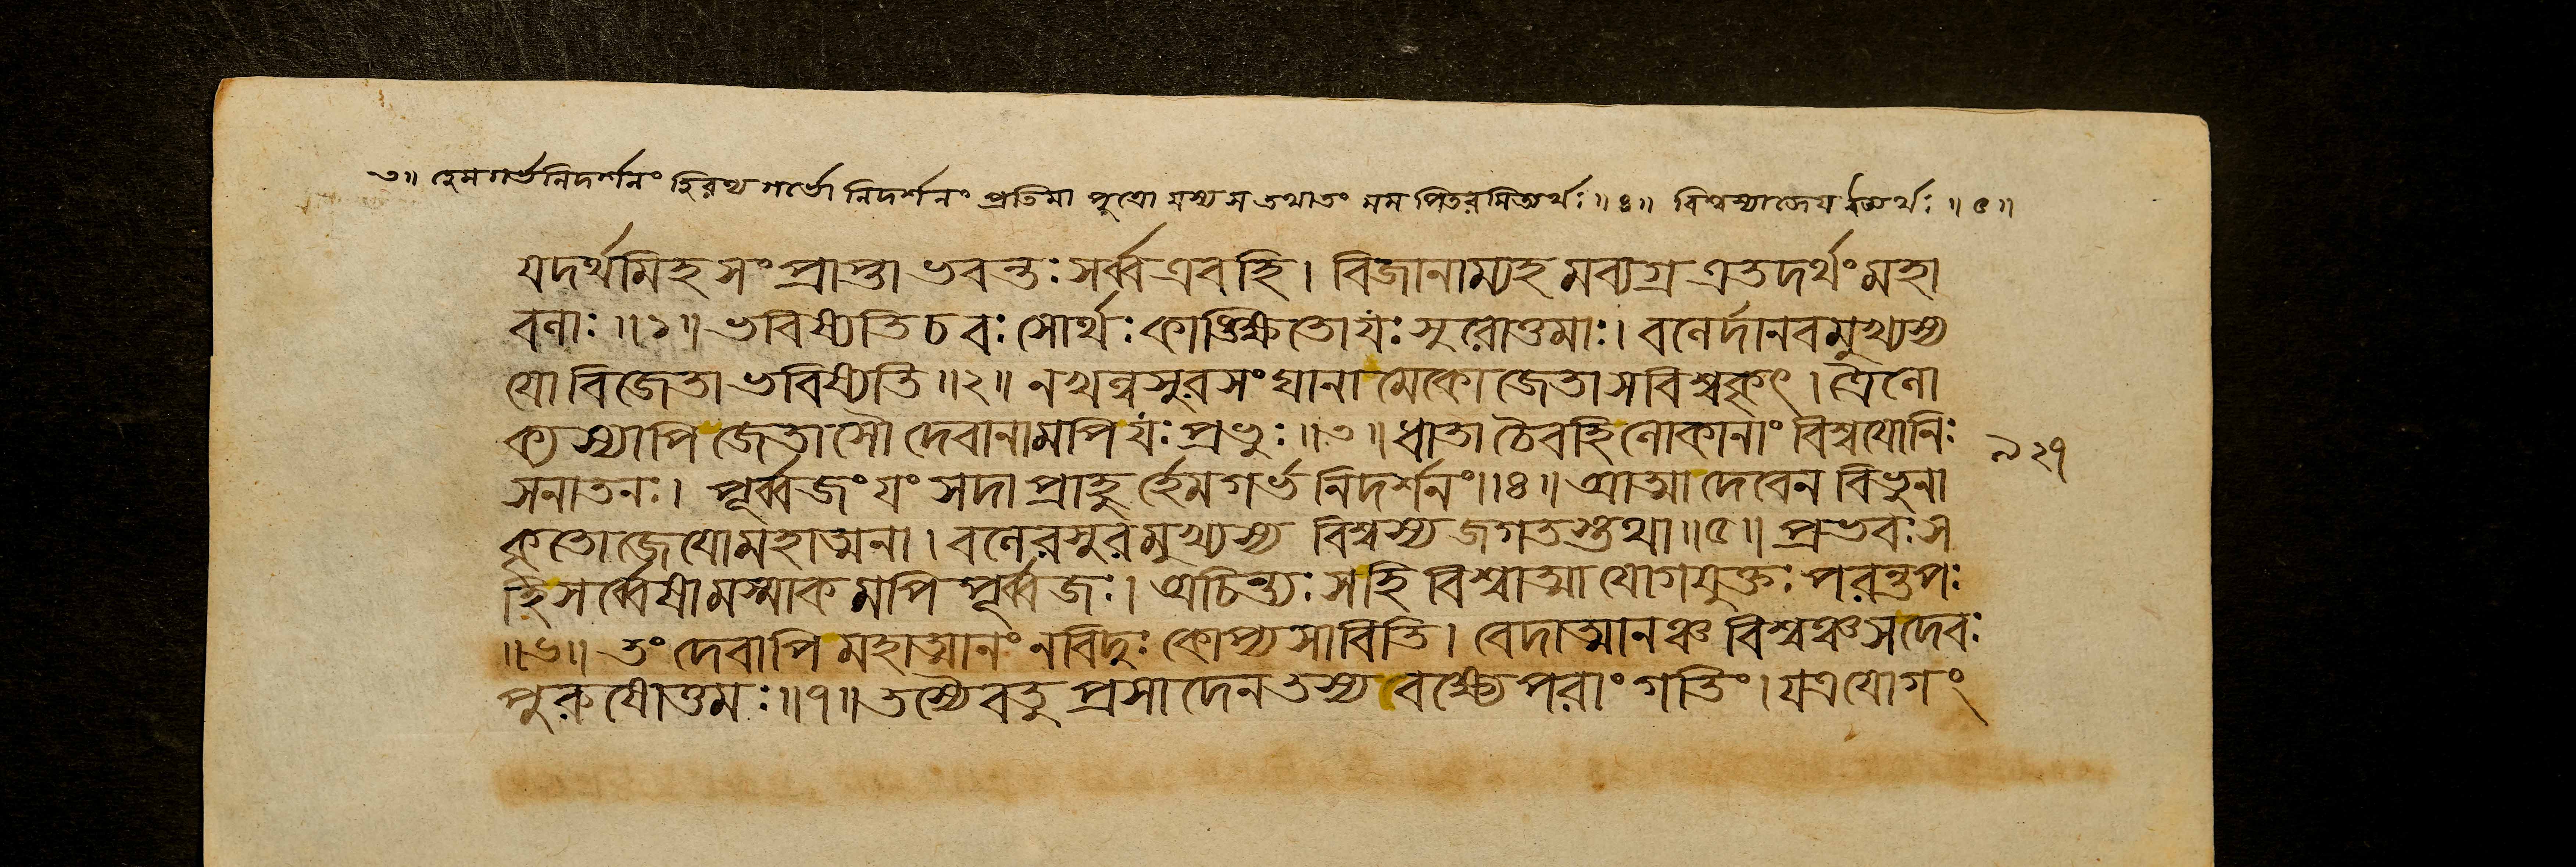 ৩॥ হেমগর্ভনিদর্শনং হিরণ্য গর্ভো নিদর্শনং প্রতিমা পুত্রো যস্য স তথা তং মম পিতরমিত্যর্থঃ॥৪॥ বিশ্বস্যাজেয় ইত্যর্থঃ॥৫॥
যদর্থমিহ সংপ্রাপ্তা ভবন্তঃ সর্ব্ব এব হি। বিজানাম্যহমব্যগ্র এতদর্থং মহা
বলাঃ॥১॥ ভবিষ্যতি চ বঃ সোর্থঃ কাঙ্ক্ষিতো যঃ সুরোত্তমাঃ। বলের্দানবমুখ্যস্য
যো বিজেতা ভবিষ্যতি॥২॥ ন খল্বসুরসংঘানামেকো জেতা স বিশ্বকৃৎ। ত্রৈলো
ক্যস্যাপি জেতাসৌ দেবানামপি যঃ প্রভুঃ॥৩॥ ধাতা চৈব হি লোকানাং বিশ্বযোনিঃ
সনাতনঃ। পূর্ব্বজং যং সদা প্রাহুর্হেমগর্ভনিদর্শনং॥৪॥ আত্মা দেবেন বিভুনা
কৃতোজেয়ো মহাত্মনা। বলেরসুরমুখ্যস্য বিশ্বস্য জগতস্তথা॥৫॥ প্রভবঃ স
হি সর্ব্বেষামস্মাকমপি পূর্ব্বজঃ। অচিন্ত্যঃ স হি বিশ্বাত্মা যোগযুক্তঃ পরন্তপঃ
॥৬॥ তং দেবাপি মহাত্মানং ন বিদুঃ কোপ্যসাবিতি। বেদাত্মানঞ্চ বিশ্বঞ্চ স দেবঃ
পুরুষোত্তমঃ॥৭॥ তস্যৈব তু প্রসাদেন তস্য বক্ষ্যে পরাং গতিং। যত্র যোগং
৯২৭